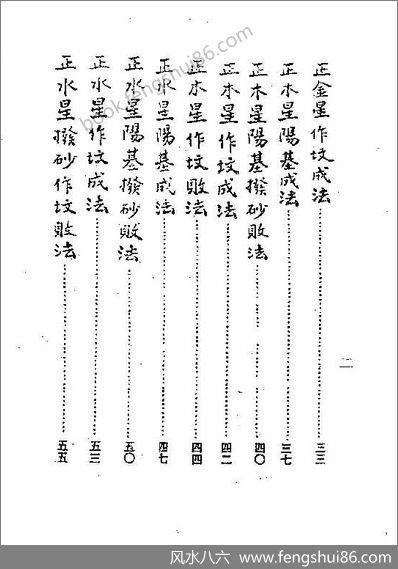 正金星作坟成法……三三
正木星陽基成法……三七
正木星陽基撥砂敗法……四〇
正木星作坟成法……四二
正木星作坟敗法……四四
正水星陽基成法……四七
正水星陽基撥砂敗法……五〇
正水星作坟成法……五三
正水星撥砂作坟敗法……五五
二
book.fengshui86.com
风水八六 www.fengshui86.com